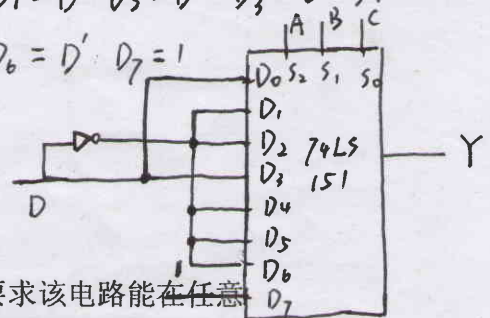 D₆ = D' D₇ = 1
A B C
D₀ S₂ S₁ S₀
D₁
D₂ 74LS
D₃ 151
D₄
D₅
D₆
1 D₇
Y
D
要求该电路能在任意